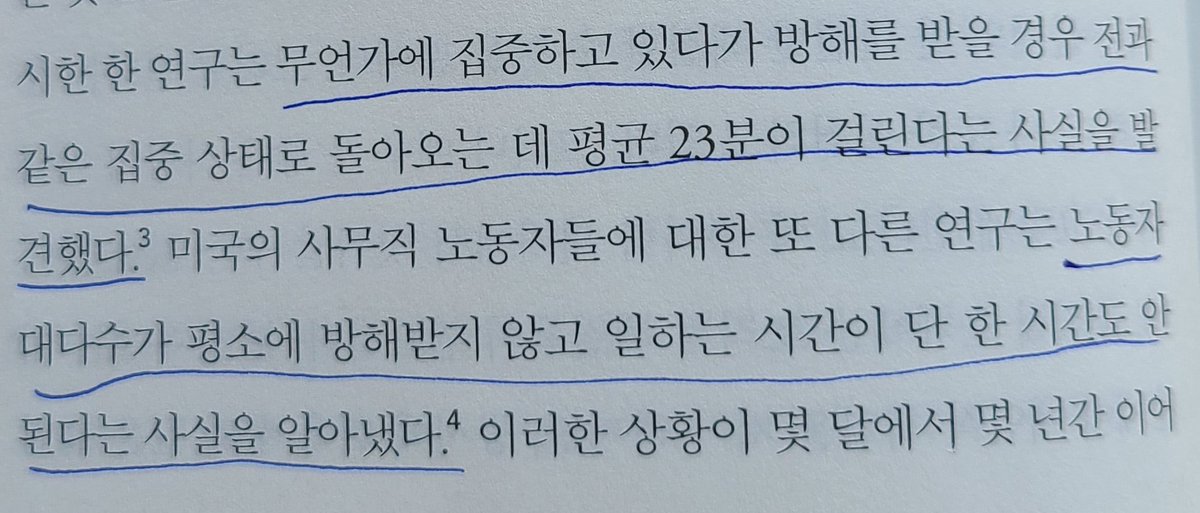 시한 한 연구는 무언가에 집중하고 있다가 방해를 받을 경우 전과
같은 집중 상태로 돌아오는 데 평균 23분이 걸린다는 사실을 발
견했다.³ 미국의 사무직 노동자들에 대한 또 다른 연구는 노동자
대다수가 평소에 방해받지 않고 일하는 시간이 단 한 시간도 안
된다는 사실을 알아냈다.⁴ 이러한 상황이 몇 달에서 몇 년간 이어